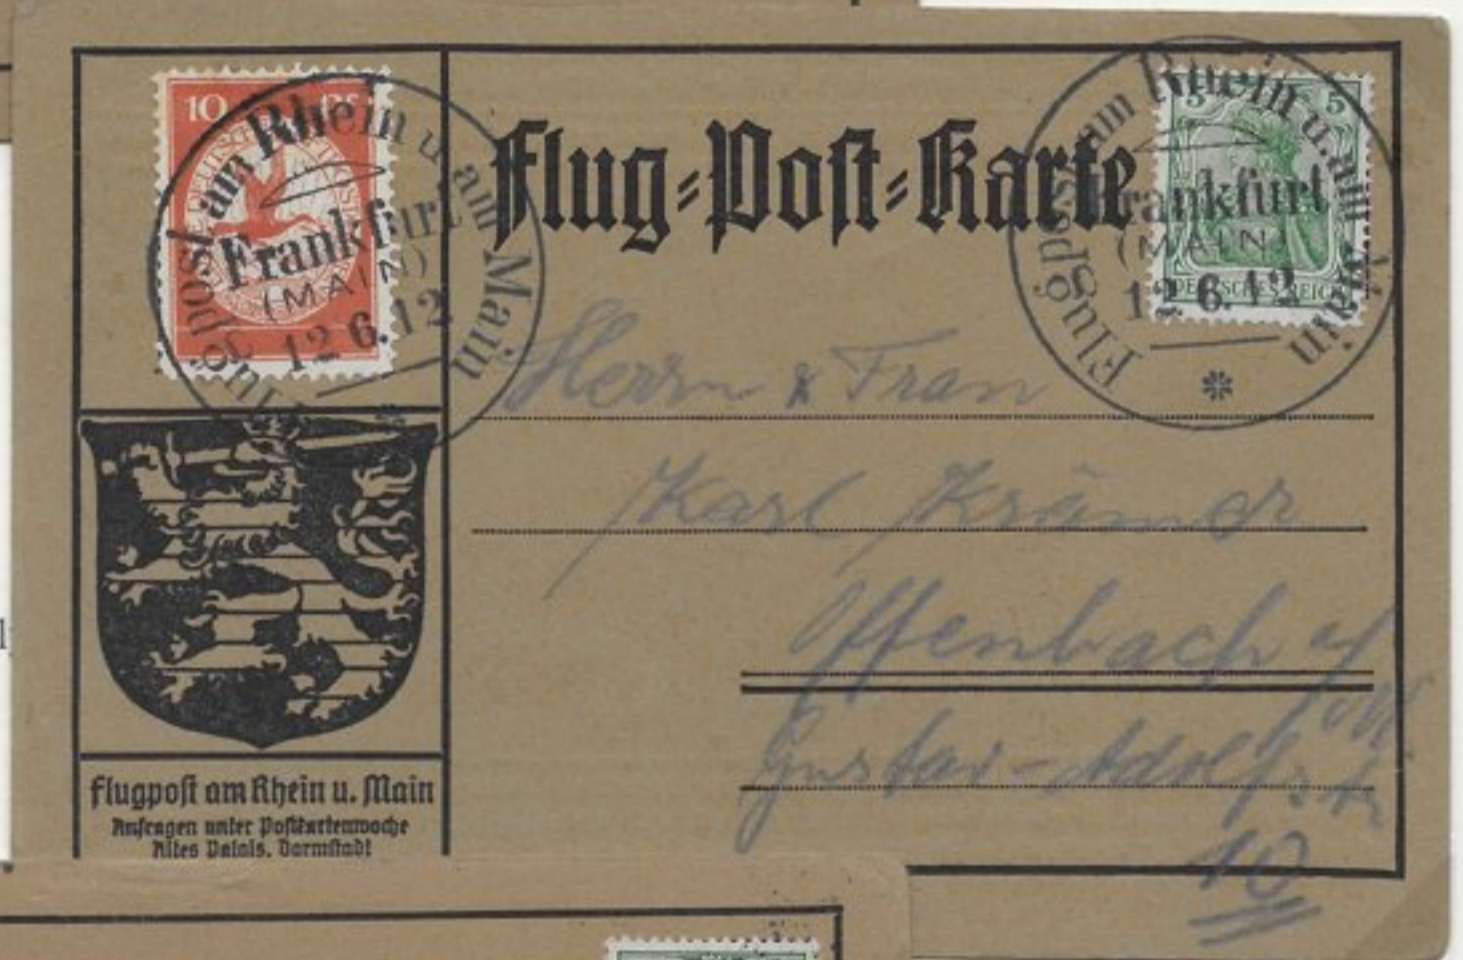 10 Pf
Flugpost am Rhein u. am Main
Frankfurt
(MAIN)
12 6.12
Flug-Post-Karte
5 5
Flugpost am Rhein u. am Main
Frankfurt
(MAIN)
12 6.12
DEUTSCHES REICH
Herrn & Frau
Karl Krämer
Offenbach a/
M.
Gustav-Adolfstr
10
Flugpost am Rhein u. Main
Anfragen unter Postkartenwoche
Altes Palais, Darmstadt